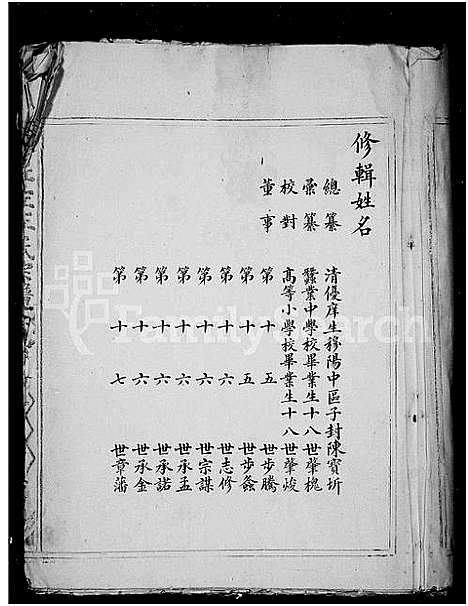 修輯姓名
總纂 清優庠生穆陽中區子封陳寶圻
彙纂 蠶業中學校畢業生十八世肇槐
校對 高等小學校畢業生十八世肇焌
董事 第十五世步騰
第十五世步鈖
第十六世志修
第十六世宗謀
第十六世承孟
第十六世承諾
第十六世承金
第十七世章藩
FamilySearch